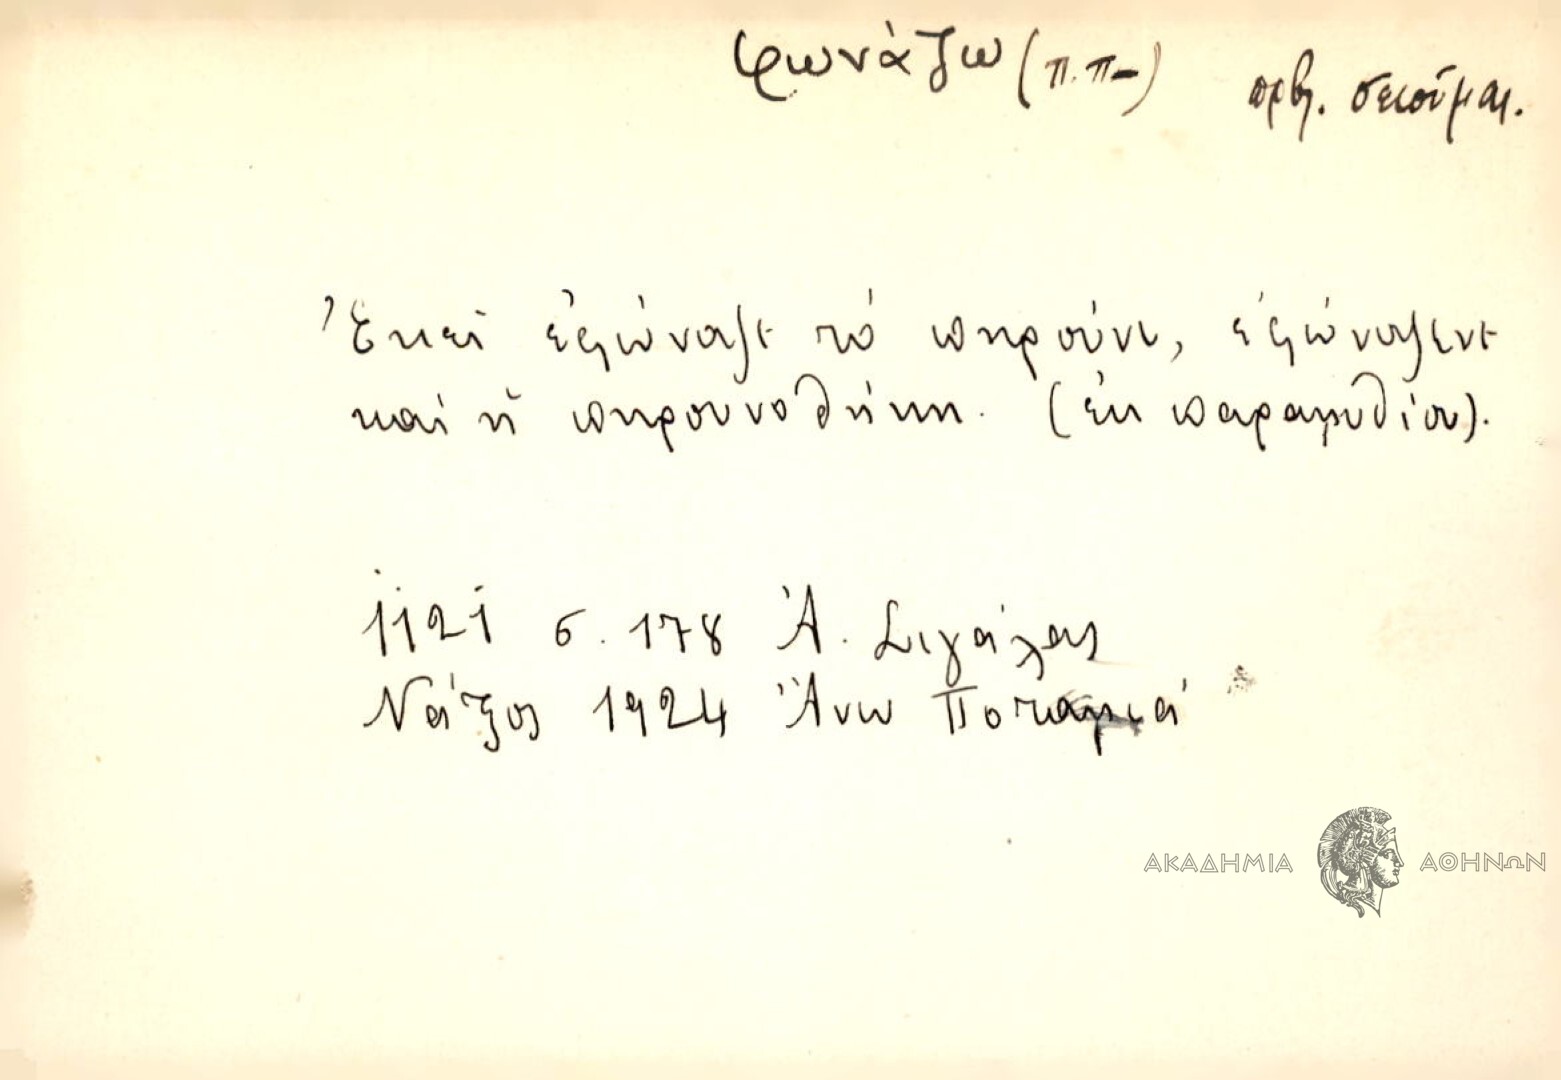 φωνάζω (π.π-) πρβλ. σειοῦμαι.
Ἐκεῖ ἐφώναξε τό πηρούνι, ἐφώναξενε
καί ἡ πηρουνοθήκη. (ἐκ παραμυθίου).
1121 σ. 178 Ἀ. Σιγάλας
Νάξος 1924 Ἄνω Ποταμιά
ΑΚΑΔΗΜΙΑ ΑΘΗΝΩΝ